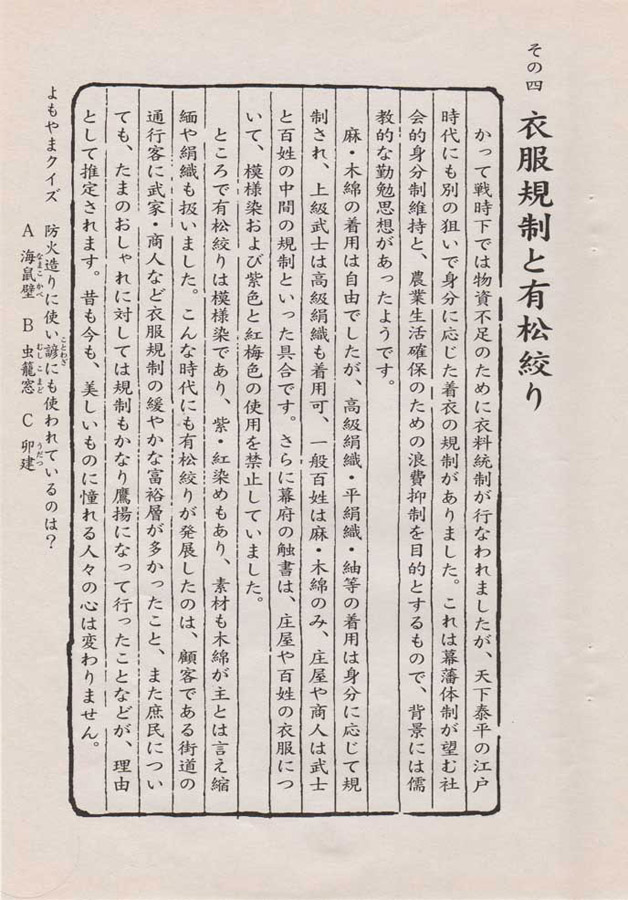 その四　衣服規制と有松絞り
かって戦時下では物資不足のために衣料統制が行なわれましたが、天下泰平の江戸
時代にも別の狙いで身分に応じた着衣の規制がありました。これは幕藩体制が望む社
会的身分制維持と、農業生活確保のための浪費抑制を目的とするもので、背景には儒
教的な勤勉思想があったようです。
麻・木綿の着用は自由でしたが、高級絹織・平絹織・紬等の着用は身分に応じて規
制され、上級武士は高級絹織も着用可、一般百姓は麻・木綿のみ、庄屋や商人は武士
と百姓の中間の規制といった具合です。さらに幕府の触書は、庄屋や百姓の衣服につ
いて、模様染および紫色と紅梅色の使用を禁止していました。
ところで有松絞りは模様染であり、紫・紅染めもあり、素材も木綿が主とは言え縮
緬や絹織も扱いました。こんな時代にも有松絞りが発展したのは、顧客である街道の
通行客に武家・商人など衣服規制の緩やかな富裕層が多かったこと、また庶民につい
ても、たまのおしゃれに対しては規制もかなり鷹揚になって行ったことなどが、理由
として推定されます。昔も今も、美しいものに憧れる人々の心は変わりません。
よもやまクイズ　防火造りに使い諺にも使われているのは？
A 海鼠壁　B 虫籠窓　C 卯建